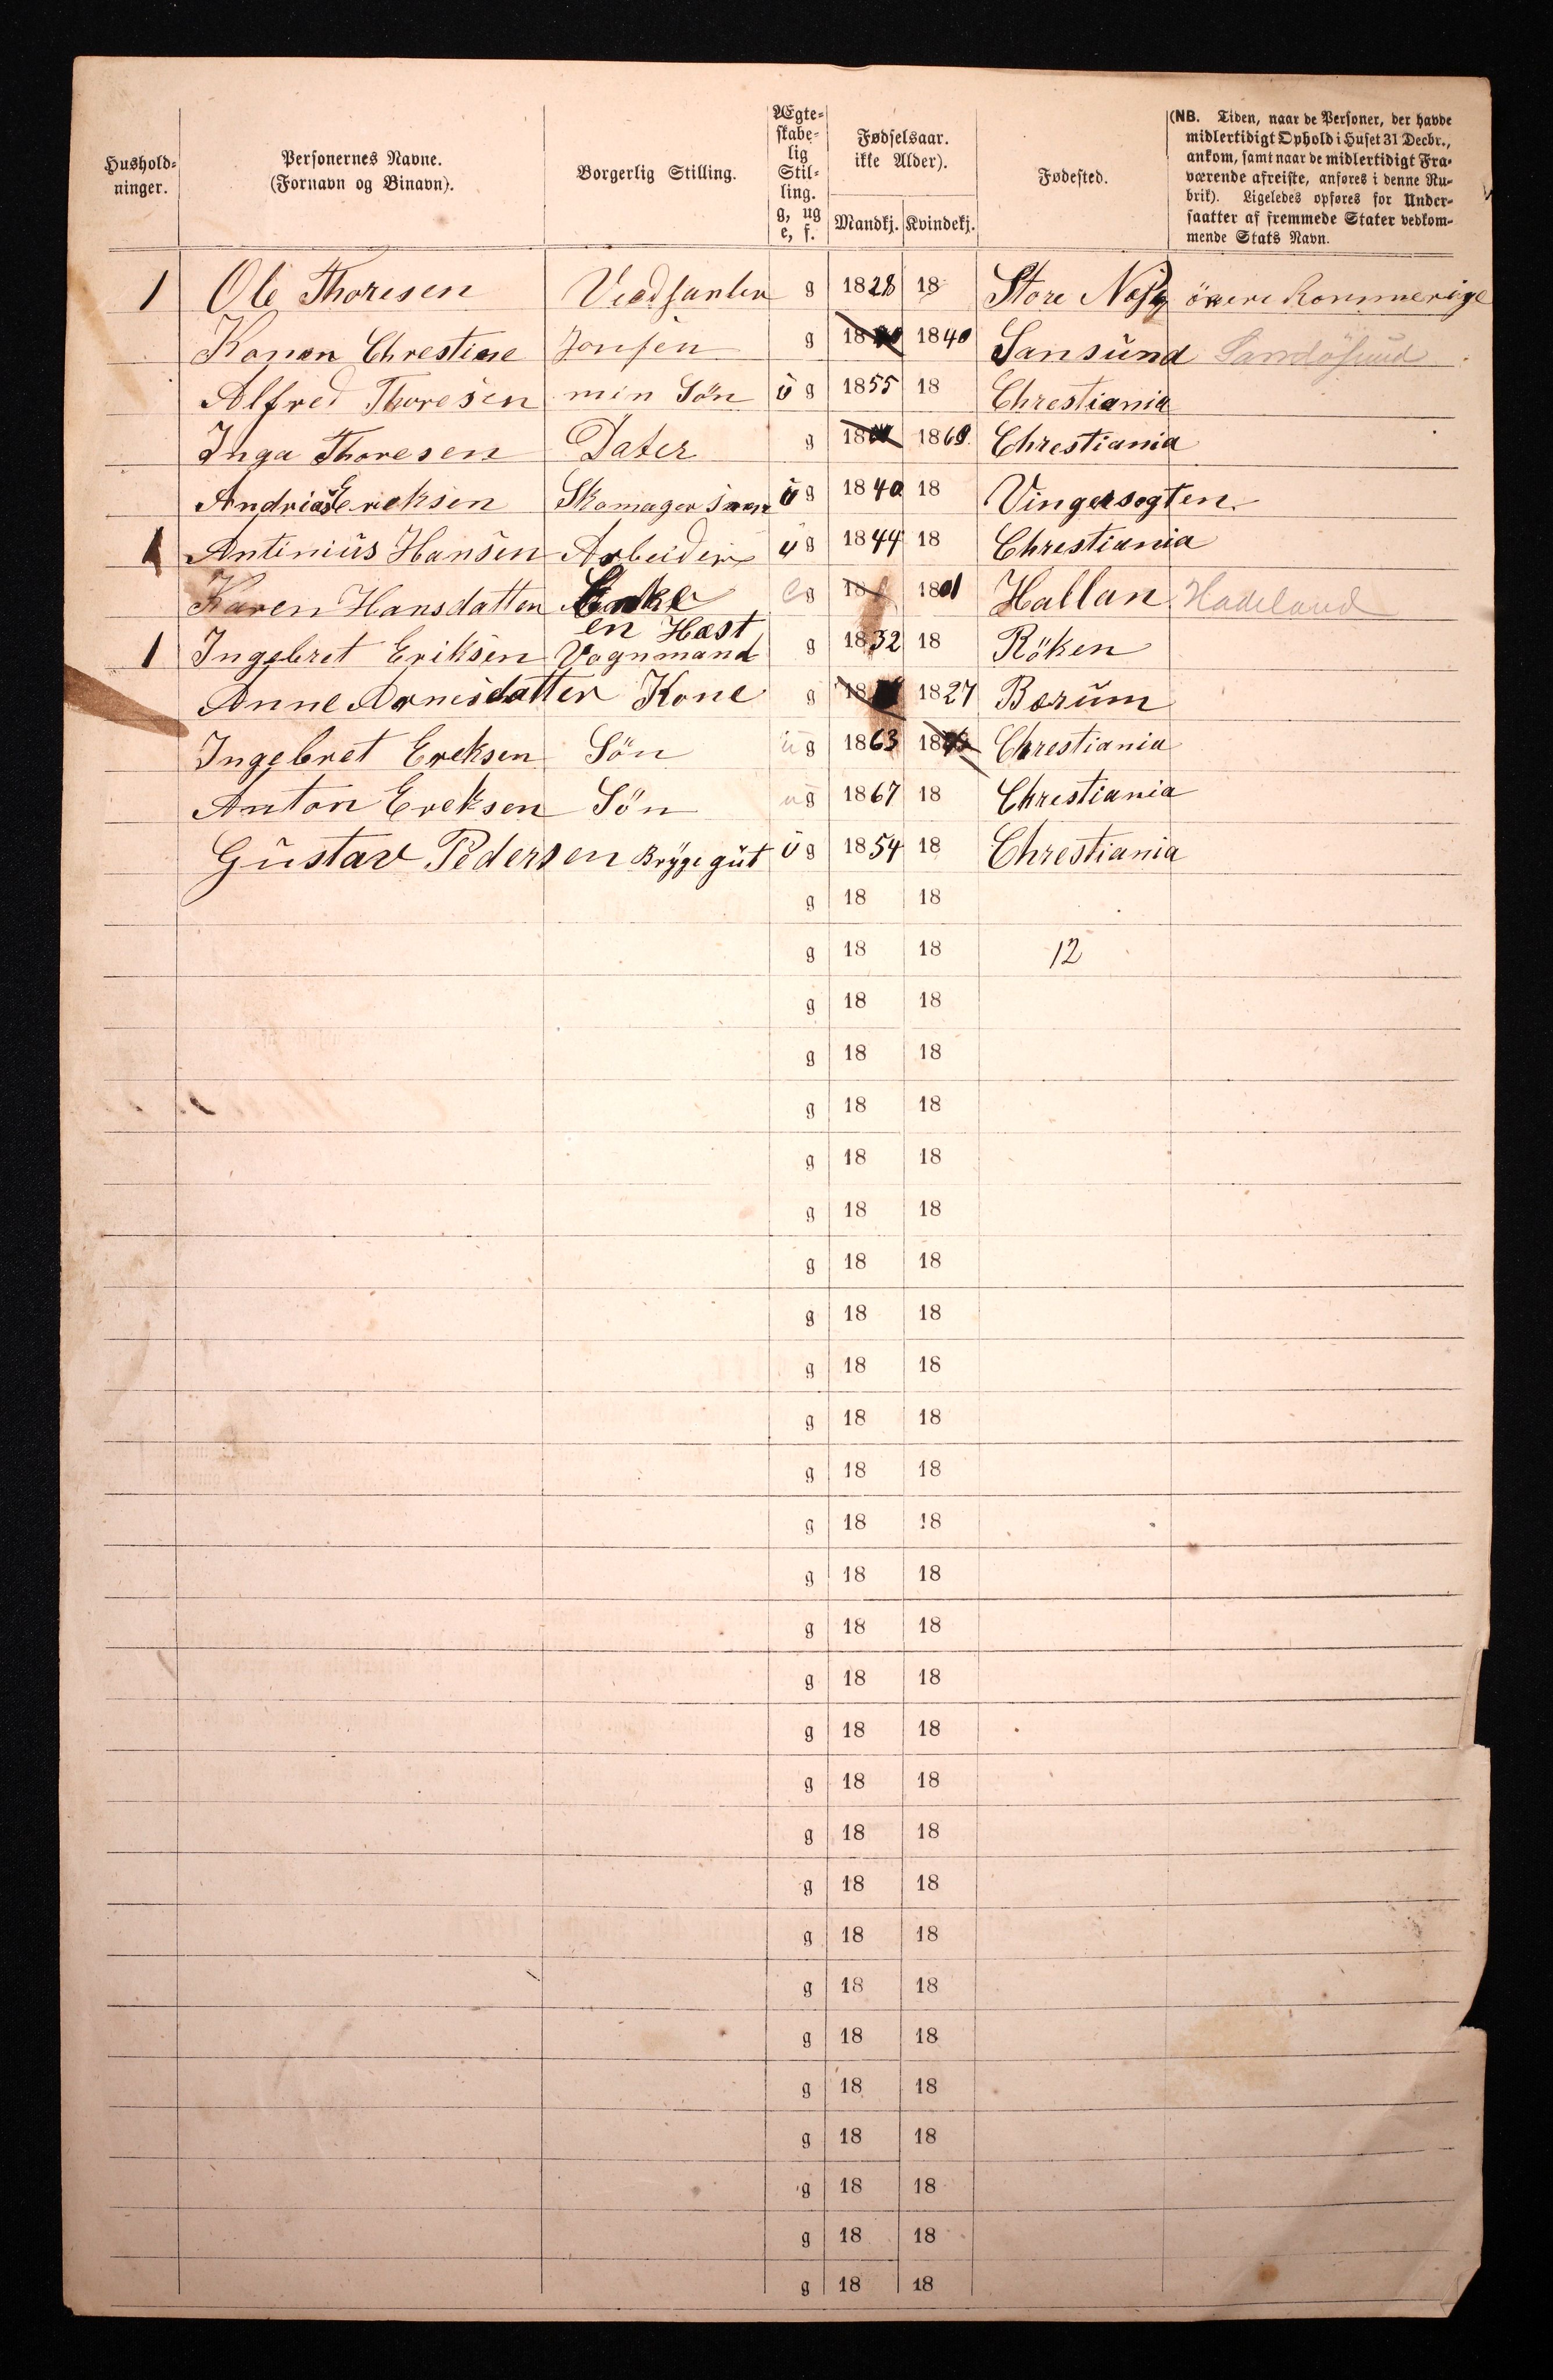 Hushold-
ninger.
Personernes Navne.
(Fornavn og Binavn).
Borgerlig Stilling.
Ægte-
skabe-
lig
Stil-
ling.
g, ug
e, f.
Fødselsaar.
ikke Alder).
Mandkj. Kvindekj.
Fødested.
(NB. Tiden, naar de Personer, der havde
midlertidigt Ophold i Huset 31 Decbr.,
ankom, samt naar de midlertidigt Fra-
værende afreiste, anføres i denne Ru-
brik). Ligeledes opføres for Under-
saatter af fremmede Stater vedkom-
mende Stats Navn.
1 Ole Thoresen g 1828 18 Store Nøss övere Rommerige
Konen Chrestine Jonsen g 18 1840 Sansund Sandösund
Alfred Thoresen min Sön ug 1855 18 Chrestiania
Inga Thoresen Dater g 18 1869 Chrestiania
Andrias Ereksen Skomager ug 1840 18 Vingersogten
1 Antinius Hansen Arbeider ug 1844 18 Chrestiania
Karen Hansdatter Enke e g 18 1801 Hallan Hadeland
en Hæst
1 Ingebret Eriksen Vognmand g 1832 18 Röken
Anne Arnisdatter Kone g 18 1827 Bærum
Ingebret Ereksen Sön ug 1863 18 Chrestiania
Anton Ereksen Sön ug 1867 18 Chrestiania
Gustav Pedersen Brygegut ug 1854 18 Chrestiania
g 18 18
g 18 18 12
g 18 18
g 18 18
g 18 18
g 18 18
g 18 18
g 18 18
g 18 18
g 18 18
g 18 18
g 18 18
g 18 18
g 18 18
g 18 18
g 18 18
g 18 18
g 18 18
g 18 18
g 18 18
g 18 18
g 18 18
g 18 18
g 18 18
g 18 18
g 18 18
g 18 18
g 18 18